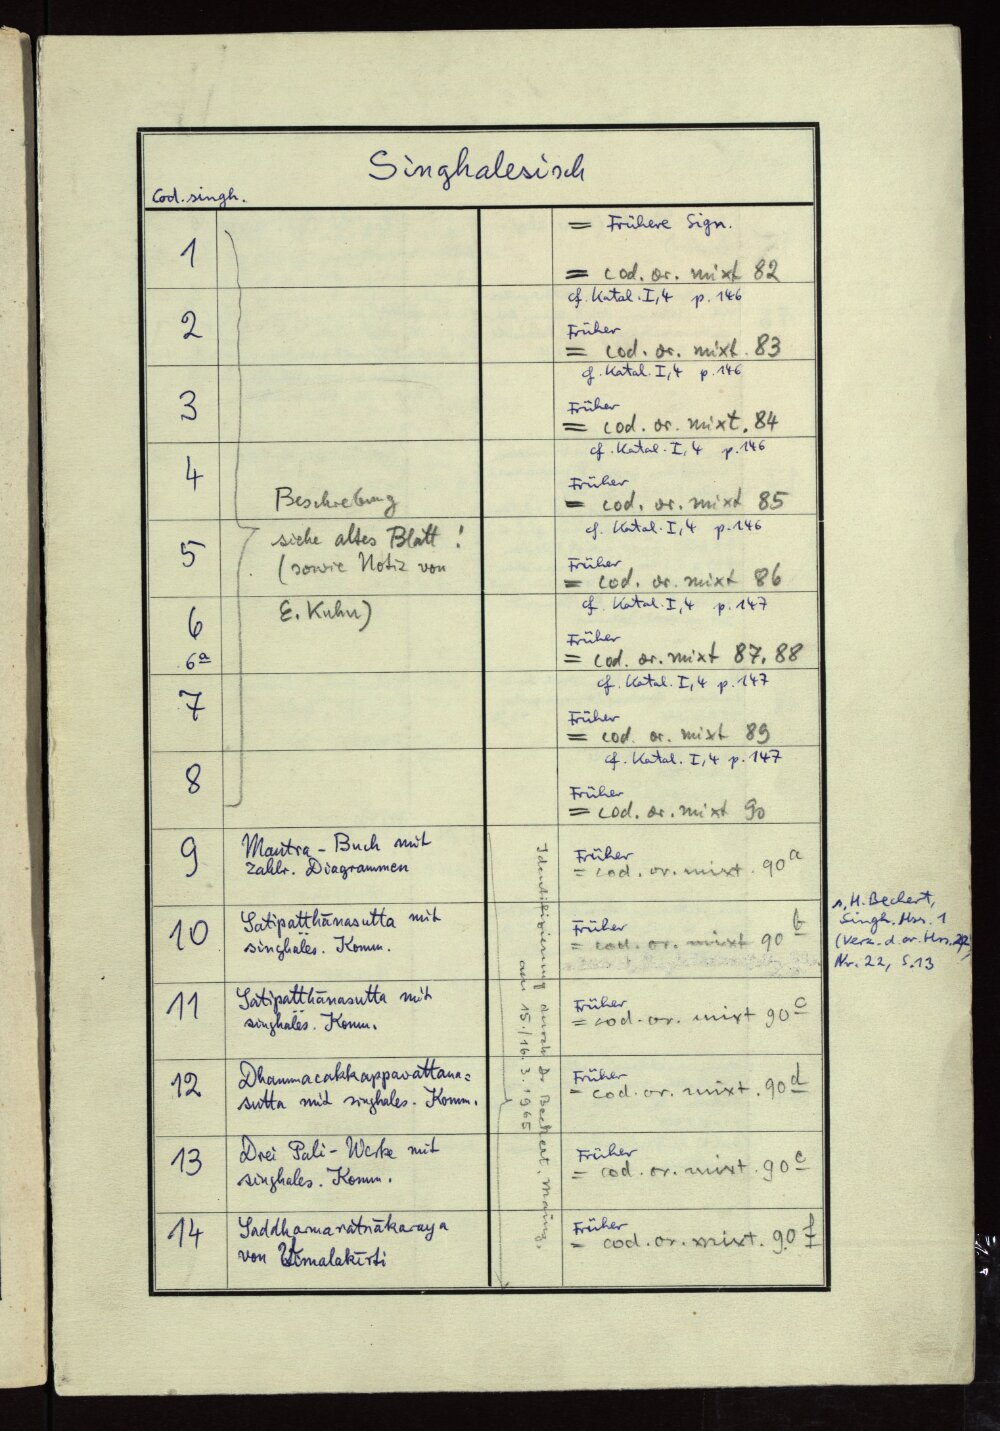 Singhalesisch
Cod. singh.
= Frühere Sign.
1
= cod. or. mixt 82
cf. Katal. I,4 p. 146
2
Früher
= cod. or. mixt. 83
cf. Katal. I,4 p. 146
3
Früher
= cod. or. mixt. 84
cf. Katal. I, 4 p. 146
4
Früher
= cod. or. mixt 85
Beschreibung
siehe altes Blatt !
(sowie Notiz von
E. Kuhn)
cf. Katal. I, 4 p. 146
5
Früher
= cod. or. mixt 86
cf. Katal. I, 4 p. 147
6
6a
Früher
= cod. or. mixt 87, 88
cf. Katal. I, 4 p. 147
7
Früher
= cod. or. mixt 89
cf. Katal. I, 4 p. 147
8
Früher
= cod. or. mixt 90
9
Mantra - Buch mit
zahlr. Diagrammen
Früher
= cod. or. mixt. 90 a
10
Satipaṭṭhānasutta mit
singhales. Komm.
Früher
= cod. or. mixt 90 b
s. H. Bechert,
Singh. Hss. 1
(Verz. d. or. Hss. 22,
Nr. 22, S. 13
11
Satipaṭṭhānasutta mit
singhales. Komm.
Früher
= cod. or. mixt 90 c
12
Dhammacakkappavattana=
sutta mit singhales. Komm.
Früher
= cod. or. mixt. 90 d
13
Drei Pali - Werke mit
singhales. Komm.
Früher
= cod. or. mixt. 90 e
14
Saddharmaratnākaraya
von Vimalakīrti
Früher
= cod. or. mixt. 90 f
Identifizierung durch Dr. Bechert, Mainz,
am 15./16. 3. 1965